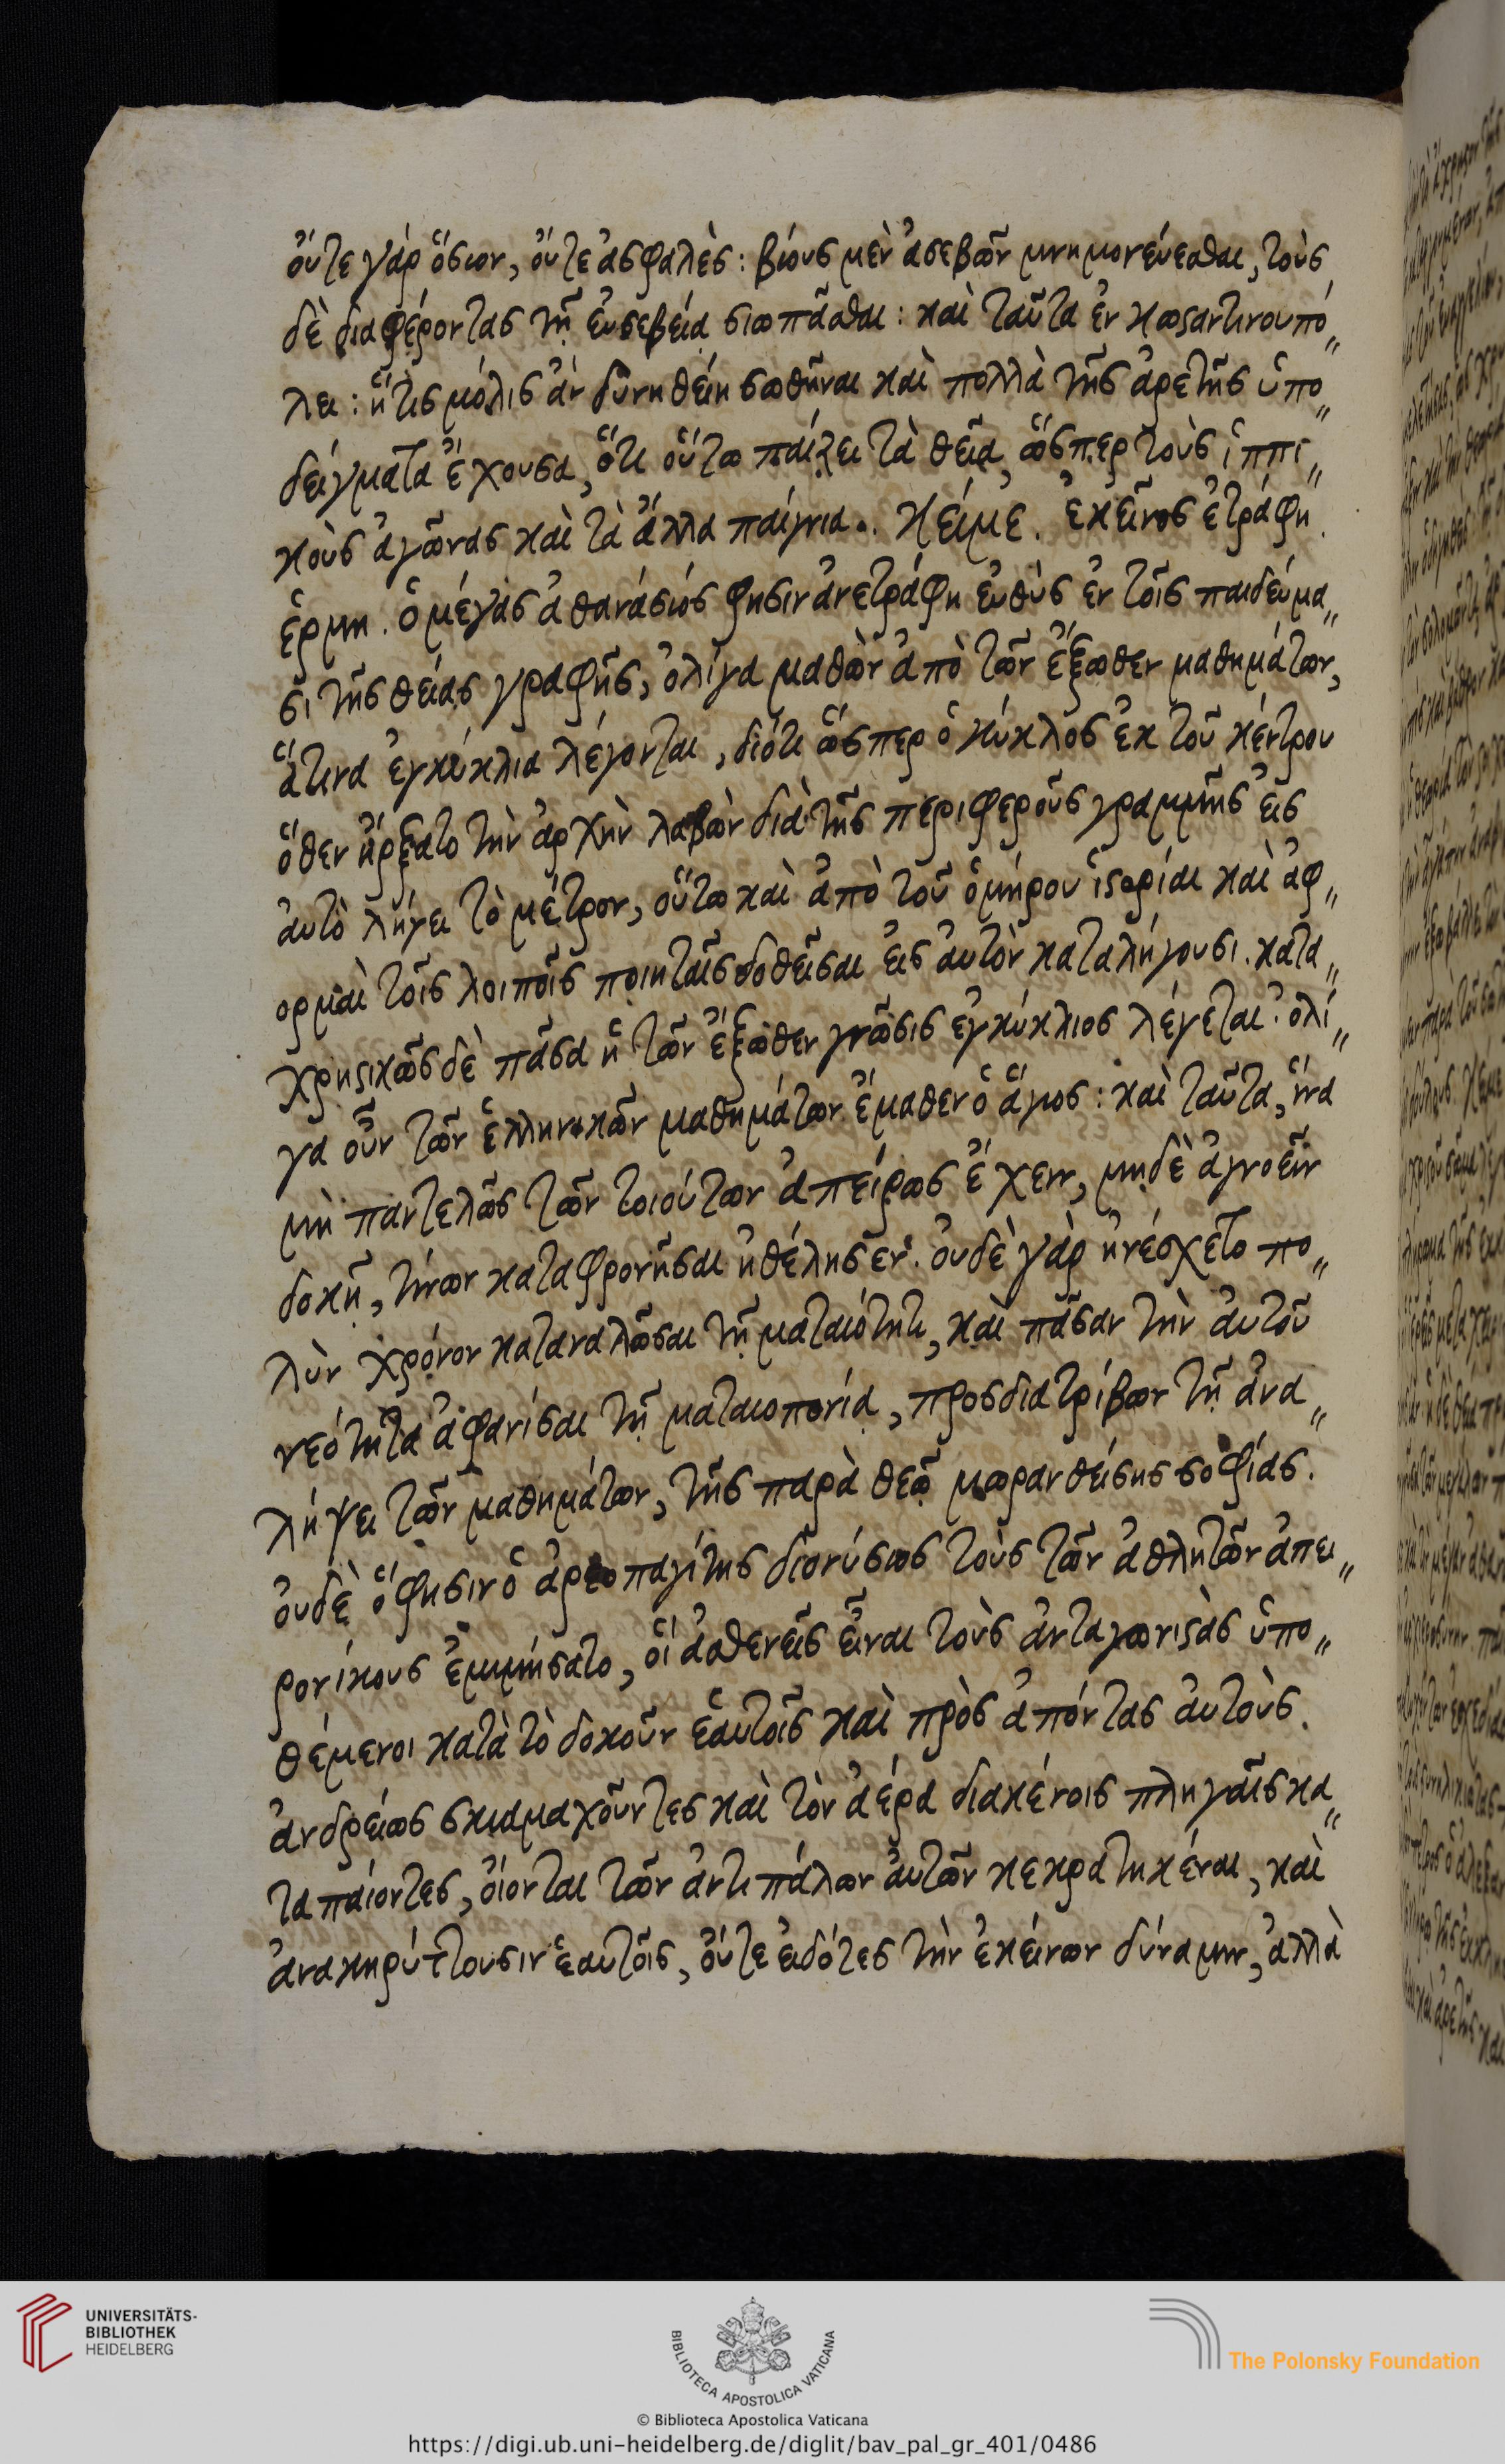 οὔτε γάρ ὅσιον, οὔτε ἀσφαλὲς: βίους μὲν ἀσεβῶν μνημονεύεσθαι, τοὺς
δὲ διαφέροντας τῇ εὐσεβείᾳ σιωπᾶσθαι: καὶ ταῦτα ἐν κωσταντινουπό„
λει: ἥτις μόλις ἂν δυνηθείη σωθῆναι καὶ πολλὰ τῆς ἀρετῆς ὑπο„
δείγματα ἔχουσα, ὅτι οὕτω παίζει τὰ θεῖα, ὥσπερ τοὺς ἱππι„
κοὺς ἀγῶνας καὶ τὰ ἄλλα παίγνια.. κείμε. ἐκεῖνος ἐτράφη.
ἑρμη. ὁ μέγας ἀθανάσιός φησιν ἀνετράφη εὐθὺς ἐν τοῖς παιδεύμα„
σι τῆς θείας γραφῆς, ὀλίγα μαθὼν ἀπὸ τῶν ἔξωθεν μαθημάτων,
ἅτινα ἐγκύκλια λέγονται, διότι ὥσπερ ὁ κύκλος ἐκ τοῦ κέντρου
ὅθεν ἤρξατο τὴν ἀρχὴν λαβὼν διὰ τῆς περιφεροῦς γραμμῆς εἰς
αὐτὸ λήγει τὸ μέτρον, οὕτω καὶ ἀπὸ τοῦ ὁμήρου ἱστορίαι καὶ ἀφ„
ορμαὶ τοῖς λοιποῖς ποιηταῖς δοθεῖσαι εἰς αὐτὸν καταλήγουσι. κατα„
χρηστικῶς δὲ πᾶσα ἡ τῶν ἔξωθεν γνῶσις ἐγκύκλιος λέγεται· ὀλί„
γα οὖν τῶν ἑλληνικῶν μαθημάτων ἔμαθεν ὁ ἅγιος: καὶ ταῦτα, ἵνα
μὴ παντελῶς τῶν τοιούτων ἀπείρως ἔχειν, μηδὲ ἀγνοεῖν
δοκῇ, τίνων καταφρονῆσαι ἠθέλησεν. οὐδὲ γὰρ ἠνέσχετο πο„
λὺν χρόνον καταναλῶσαι τῇ ματαιότητι, καὶ πᾶσαν τὴν αὐτοῦ
νεότητα ἀφανίσαι τῇ ματαιοπονίᾳ, προσδιατρίβων τῇ ἀνα„
λήψει τῶν μαθημάτων, τῆς παρὰ θεῷ μωρανθείσης σοφίας.
οὐδὲ ὅ φησιν ὁ ἀρεοπαγίτης διονύσιος τοὺς τῶν ἀθλητῶν ἀπει„
ρονίκους ἐμιμήσατο, οἳ ἀσθενεῖς εἶναι τοὺς ἀνταγωνιστὰς ὑπο„
θέμενοι κατὰ τὸ δοκοῦν ἑαυτοῖς καὶ πρὸς ἀπόντας αὐτοὺς.
ἀνδρείως σκιαμαχοῦντες καὶ τὸν ἀέρα διακένοις πληγαῖς κα„
ταπαίοντες, οἴονται τῶν ἀντιπάλων αὐτῶν κεκρατηκέναι, καὶ
ἀνακηρύττουσιν ἑαυτοῖς, οὔτε εἰδότες τὴν ἐκείνων δύναμιν, ἀλλὰ
UNIVERSITÄTS-
BIBLIOTHEK
HEIDELBERG
BIBLIOTECA APOSTOLICA VATICANA
The Polonsky Foundation
© Biblioteca Apostolica Vaticana
https://digi.ub.uni-heidelberg.de/diglit/bav_pal_gr_401/0486